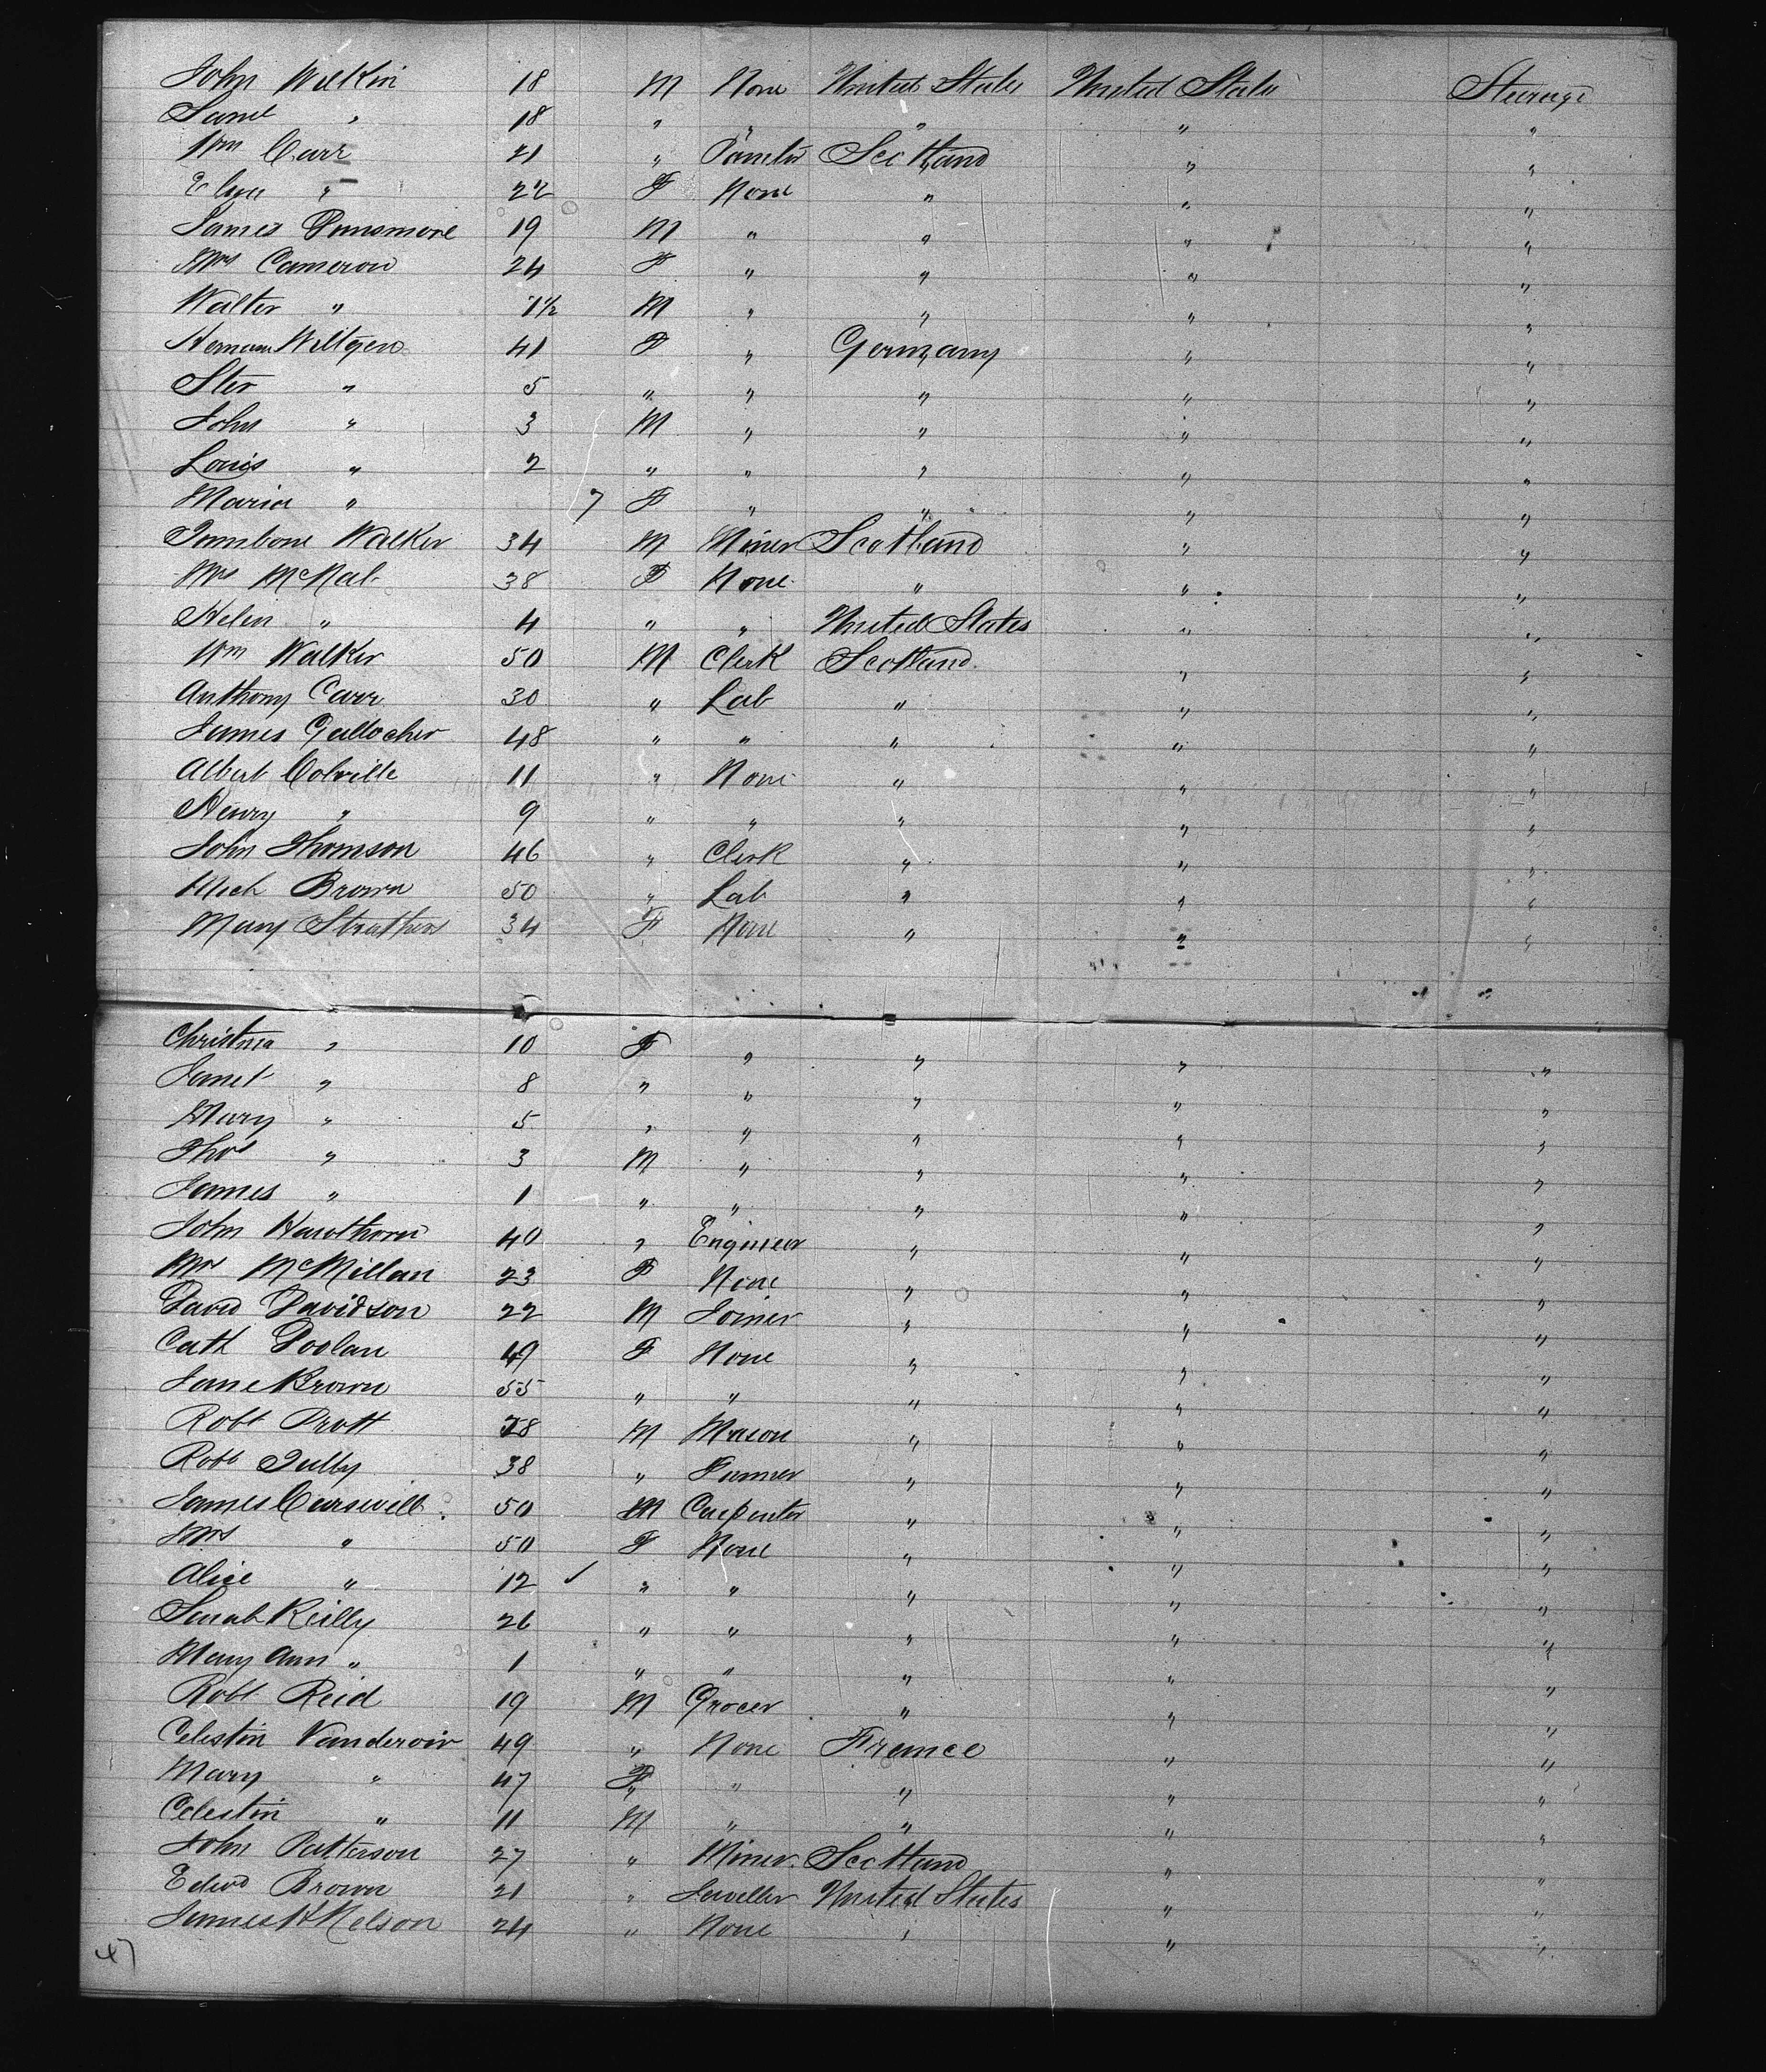 John Wilkin 18 M None United States United States Steerage
Saml " 18 " " " " "
Wm Carr 21 " Painter Scotland " "
Elsie " 22 F None " " "
James Dunsmore 19 M " " " "
Mrs Cameron 24 F " " " "
Walter " 1½ M " " " "
Herman Wiltgen 41 F " Germany " "
Ster " 5 " " " " "
John " 3 M " " " "
Louis " 2 " " " " "
Maria " 7 F " " " "
Walker 34 M Miner Scotland " "
Mrs McNab 38 F None " " "
Helen " 4 " " United States " "
Wm Walker 50 M Clerk Scotland " "
Anthony Carr 30 " Lab " " "
James Gallocher 48 " " " " "
Albert Colville 11 " None " " "
Henry " 9 " " " " "
John Thomson 46 " Clerk " " "
Mich Brown 50 " Lab " " "
Mary Struthers 34 F None " " "
Christina " 10 F " " " "
Janet " 8 " " " " "
Mary " 5 " " " " "
Thos " 3 M " " " "
James " 1 " " " " "
John Hawthorn 40 " Engineer " " "
Mrs McMillan 23 F None " " "
David Davidson 22 M Joiner " " "
Cath Doolan 49 F None " " "
Jane Brown 55 " " " " "
Robt Pratt 28 M Mason " " "
Robt 38 " Farmer " " "
James Carswell 50 M Carpenter " " "
Mrs " 50 F None " " "
Alice " 12 " " " " "
Sarah Reilly 26 " " " " "
Mary Ann " 1 " " " " "
Robt Reid 19 M Grocer " " "
Celestin Vanderoir 49 " None France " "
Mary " 47 F " " " "
Celestin " 11 M " " " "
John Patterson 27 " Miner Scotland " "
Edwd Brown 21 " Jeweller United States " "
James H Nelson 24 " None " " "
47